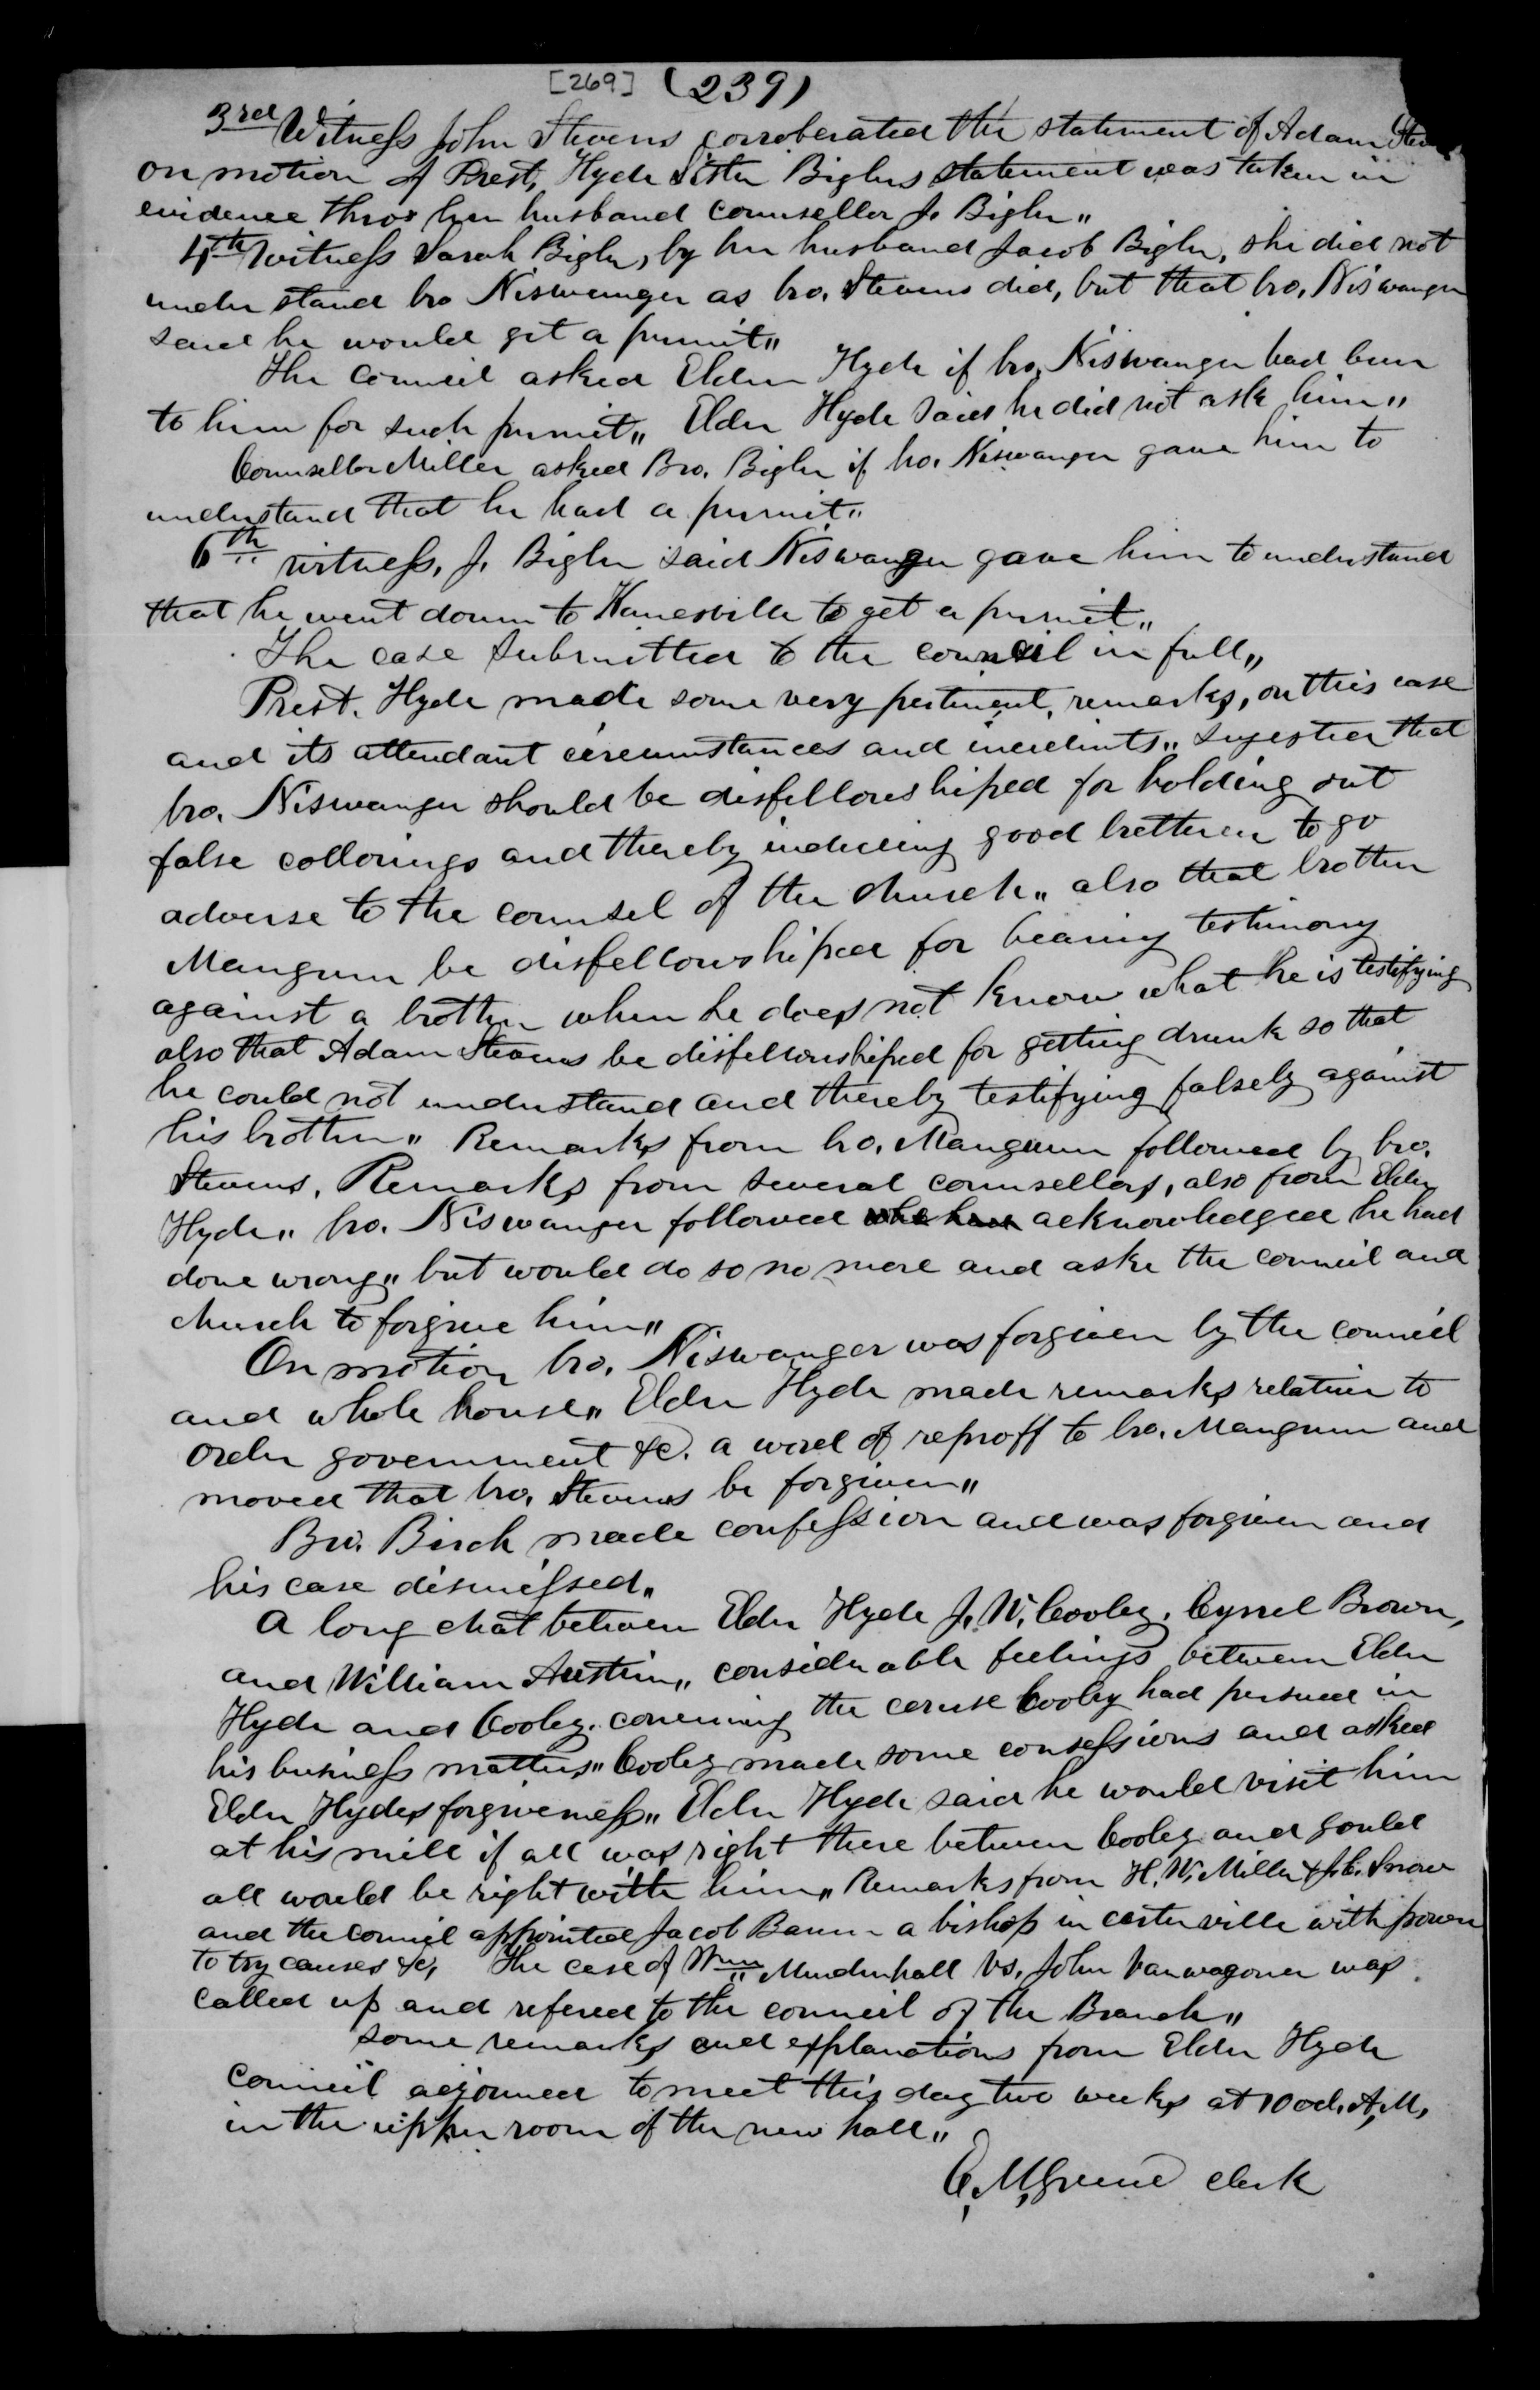 [269] (239)
3rd Witness John Stevens corroberated the statement of Adam
on motion of Prest, Hyde Sister Biglers statement was taken in
evidence thro her husband counseller J. Bigler"
4th witness Sarah Bigler, by her husband Jacob Bigler, she did not
under stand bro Niswanger as bro. Stevens did, but that bro. Niswanger
said he would git a permit"
The council asked Elder Hyde if bro. Niswanger had been
to him for such permit" Elder Hyde said he did not ask him"
Counsellor Miller asked Bro. Bigler if bro. Niswanger gave him to
understand that he had a permit"
6th witness, J. Bigler said Niswanger gave him to understand
that he went down to Kanesville to get a permit"
The case submitted to the council in full"
Prest. Hyde made some very pertinent, remarks, on this case
and its attendant circumstances and incidents" sugested that
bro. Niswanger should be disfellowshiped for holding out
false collorings and thereby inducing good bretheren to go
adverse to the counsel of the church" also that brother
Mangum be disfellowshiped for bearing testimony
against a brother when he does not know what he is testifying
also that Adam Stevens be disfellowshiped for getting drunk so that
he could not understand and thereby testifying falsely against
his brother" Remarks from bro. Mangum followed by bro.
Stevens, Remarks from several counsellors, also from Elder
Hyde" bro. Niswanger followed acknowledged he had
done wrong" but would do so no more and aske the council and
church to forgive him"
On motion bro. Niswanger was forgiven by the council
and whole house" Elder Hyde made remarks relative to
order government &c. a word of reproff to bro. Mangum and
moved that bro. Stevens be forgiven"
Bro. Birch made confession and was forgiven and
his case dismissed"
A long chat between Elder Hyde J. W. Cooley, Cyrrel Brown,
and William Austin" considerable feelings between Elder
Hyde and Cooley. conserning the coruse Cooley had persued in
his business matters" Cooley made some consessions and asked
Elder Hydes forgiveness" Elder Hyde said he would visit him
at his mill if all was right there between Cooley and Gould
all would be right with him" Remarks from H. W. Miller & J. C. Snow
and the council appointed Jacob Baum a bishop in carterville with power
to try causes &c, The case of Wm" Mendenhall vs. John Vanwagoner was
called up and refered to the council of the Branch"
some remarks and explanations from Elder Hyde
Council adjorned to meet this day two weeks at 10 ocl. A,M,
in the upper room of the new hall"
E, M, Greene clerk